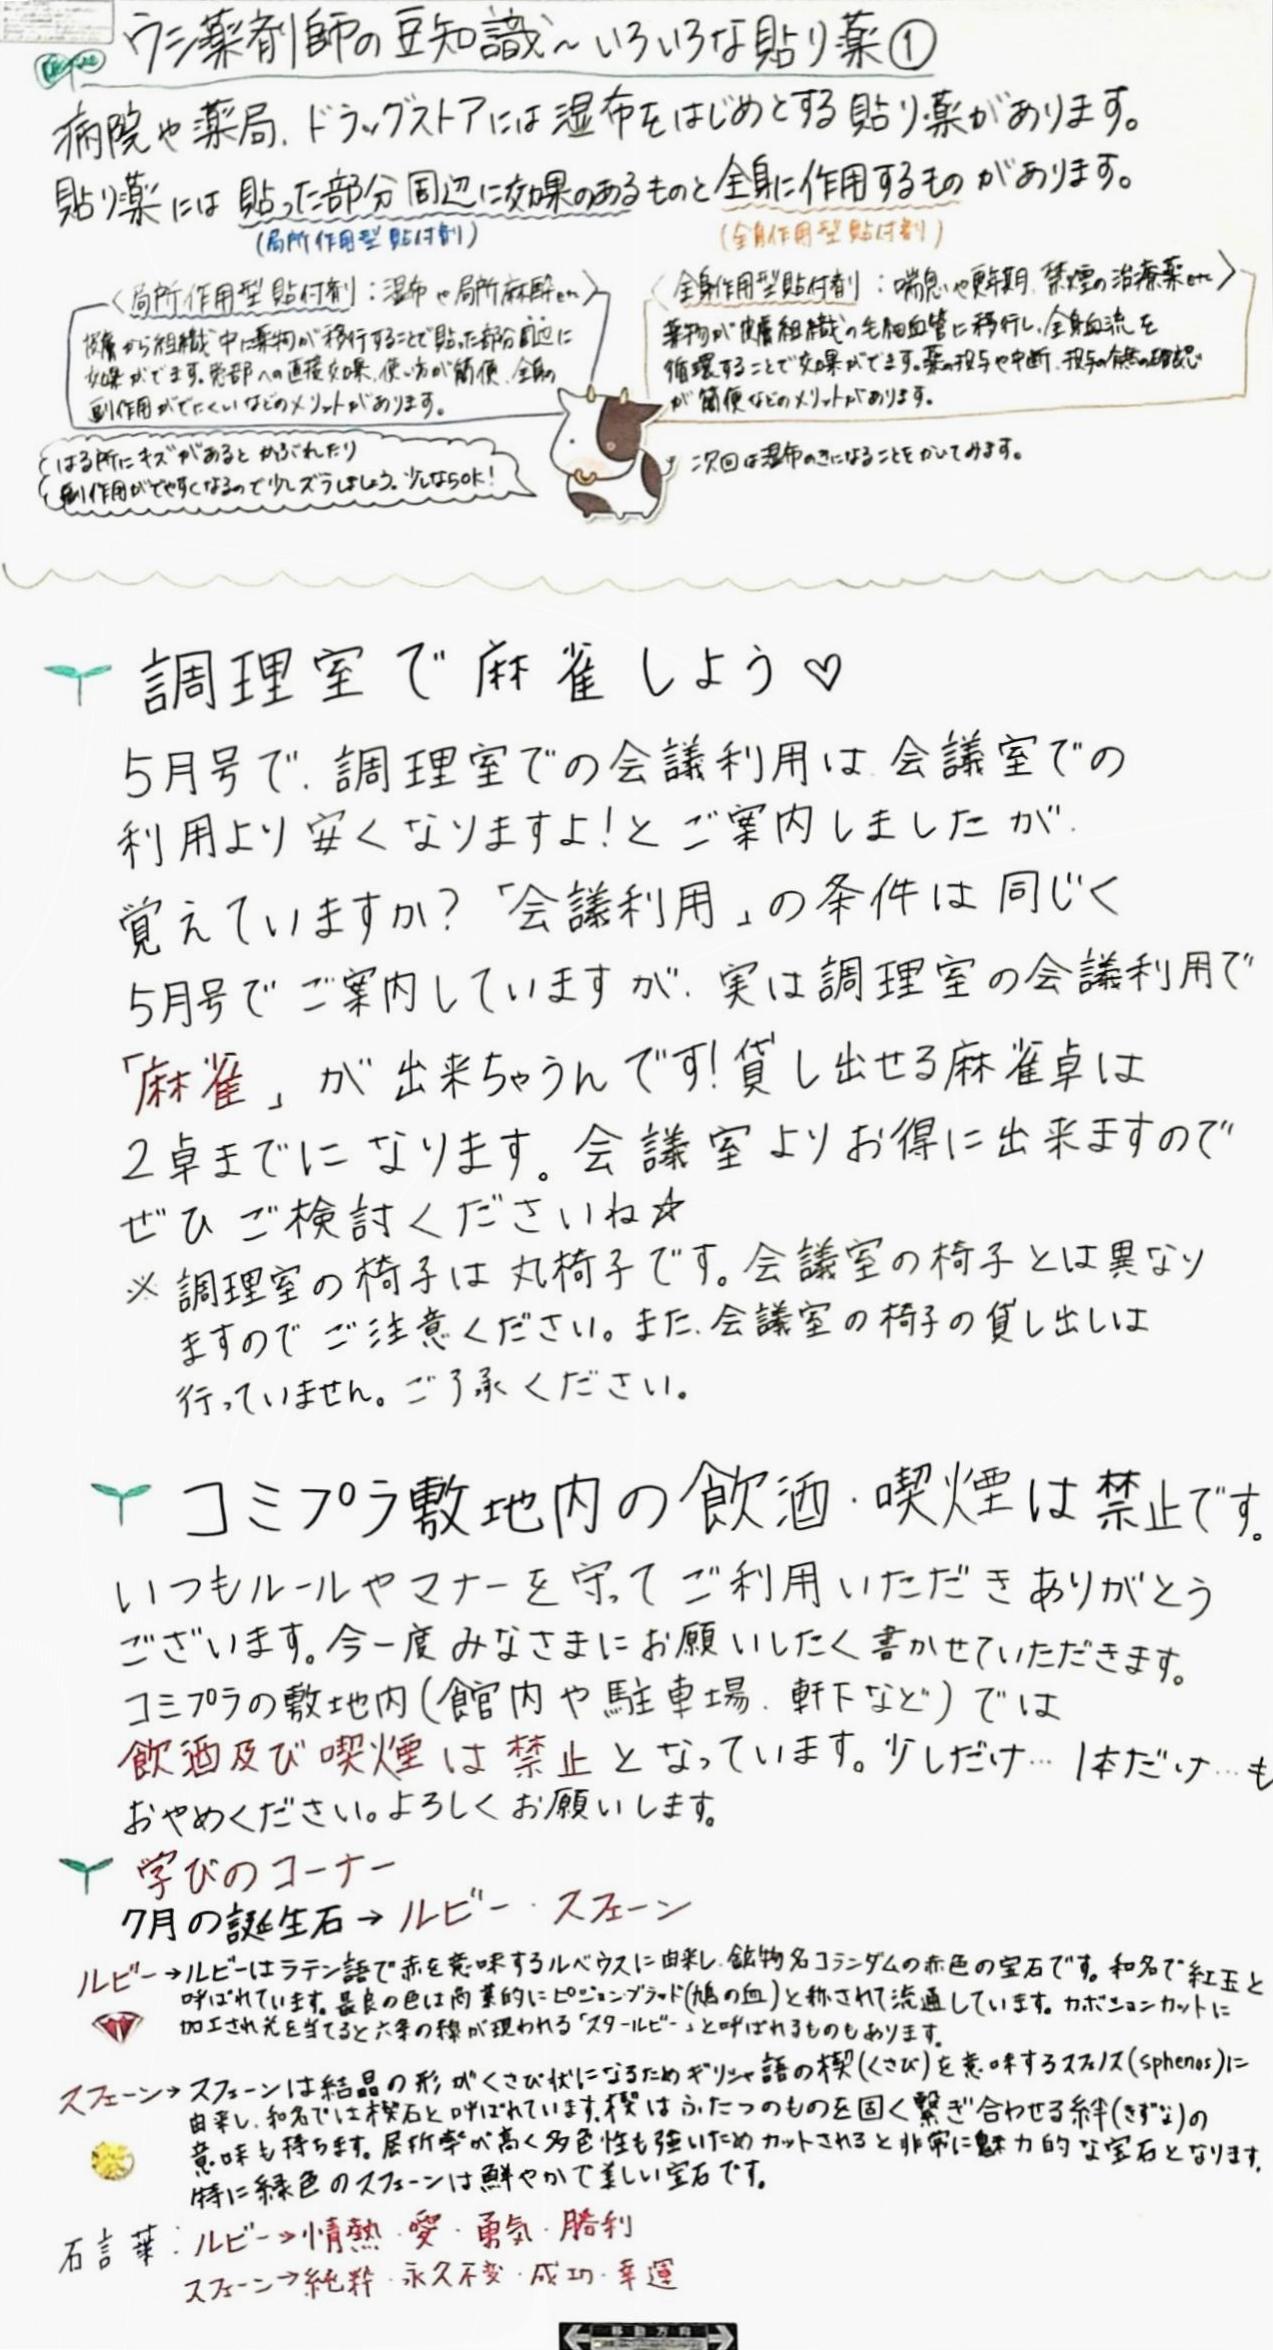 ウシ薬剤師の豆知識～いろいろな貼り薬①
病院や薬局、ドラッグストアには湿布をはじめとする貼り薬があります。
貼り薬には貼った部分周辺に効果のあるものと全身に作用するものがあります。
(局所作用型貼付剤)
(全身作用型貼付剤)
〈局所作用型貼付剤:湿布や局所麻酔etc〉
皮膚から組織中に薬物が移行することで貼った部分周辺に
効果がでます。患部への直接効果、使い方が簡便、全身の
副作用がでにくいなどのメリットがあります。
〈全身作用型貼付剤:喘息や更年期、禁煙の治療薬etc〉
薬物が皮膚組織の毛細血管に移行し、全身血流を
循環することで効果がでます。薬の投与や中断、投与の有無の確認
が簡便などのメリットがあります。
はる所にキズがあるとかぶれたり
副作用がでやすくなるので少しズラしましょう。少しならOK!
次回は湿布のきになることをかいてみます。
調理室で麻雀しよう♡
5月号で、調理室での会議利用は、会議室での
利用より安くなりますよ!とご案内しましたが、
覚えていますか?「会議利用」の条件は同じく
5月号でご案内していますが、実は調理室の会議利用で
「麻雀」が出来ちゃうんです!貸し出せる麻雀卓は
2卓までになります。会議室よりお得に出来ますので
ぜひご検討くださいね☆
※調理室の椅子は丸椅子です。会議室の椅子とは異なり
ますのでご注意ください。また、会議室の椅子の貸し出しは
行っていません。ご了承ください。
コミプラ敷地内の飲酒・喫煙は禁止です。
いつもルールやマナーを守ってご利用いただきありがとう
ございます。今一度みなさまにお願いしたく書かせていただきます。
コミプラの敷地内(館内や駐車場、軒下など)では
飲酒及び喫煙は禁止となっています。少しだけ…1本だけ…も
おやめください。よろしくお願いします。
学びのコーナー
7月の誕生石→ルビー・スフェーン
ルビー→ルビーはラテン語で赤を意味するルベウスに由来し、鉱物名コランダムの赤色の宝石です。和名で紅玉と
呼ばれています。最良の色は商業的にピジョンブラッド(鳩の血)と称されて流通しています。カボションカットに
加工され光を当てると六条の線が現われる「スタールビー」と呼ばれるものもあります。
スフェーン→スフェーンは結晶の形がくさび状になるためギリシャ語の楔(くさび)を意味するスフェノス(sphenos)に
由来し、和名では楔石と呼ばれています。楔はふたつのものを固く繋ぎ合わせる絆(きずな)の
意味も持ちます。屈折率が高く多色性も強いためカットされると非常に魅力的な宝石となります。
特に緑色のスフェーンは鮮やかで美しい宝石です。
石言葉:ルビー→情熱・愛・勇気・勝利
スフェーン→純粋・永久不変・成功・幸運
移動方向